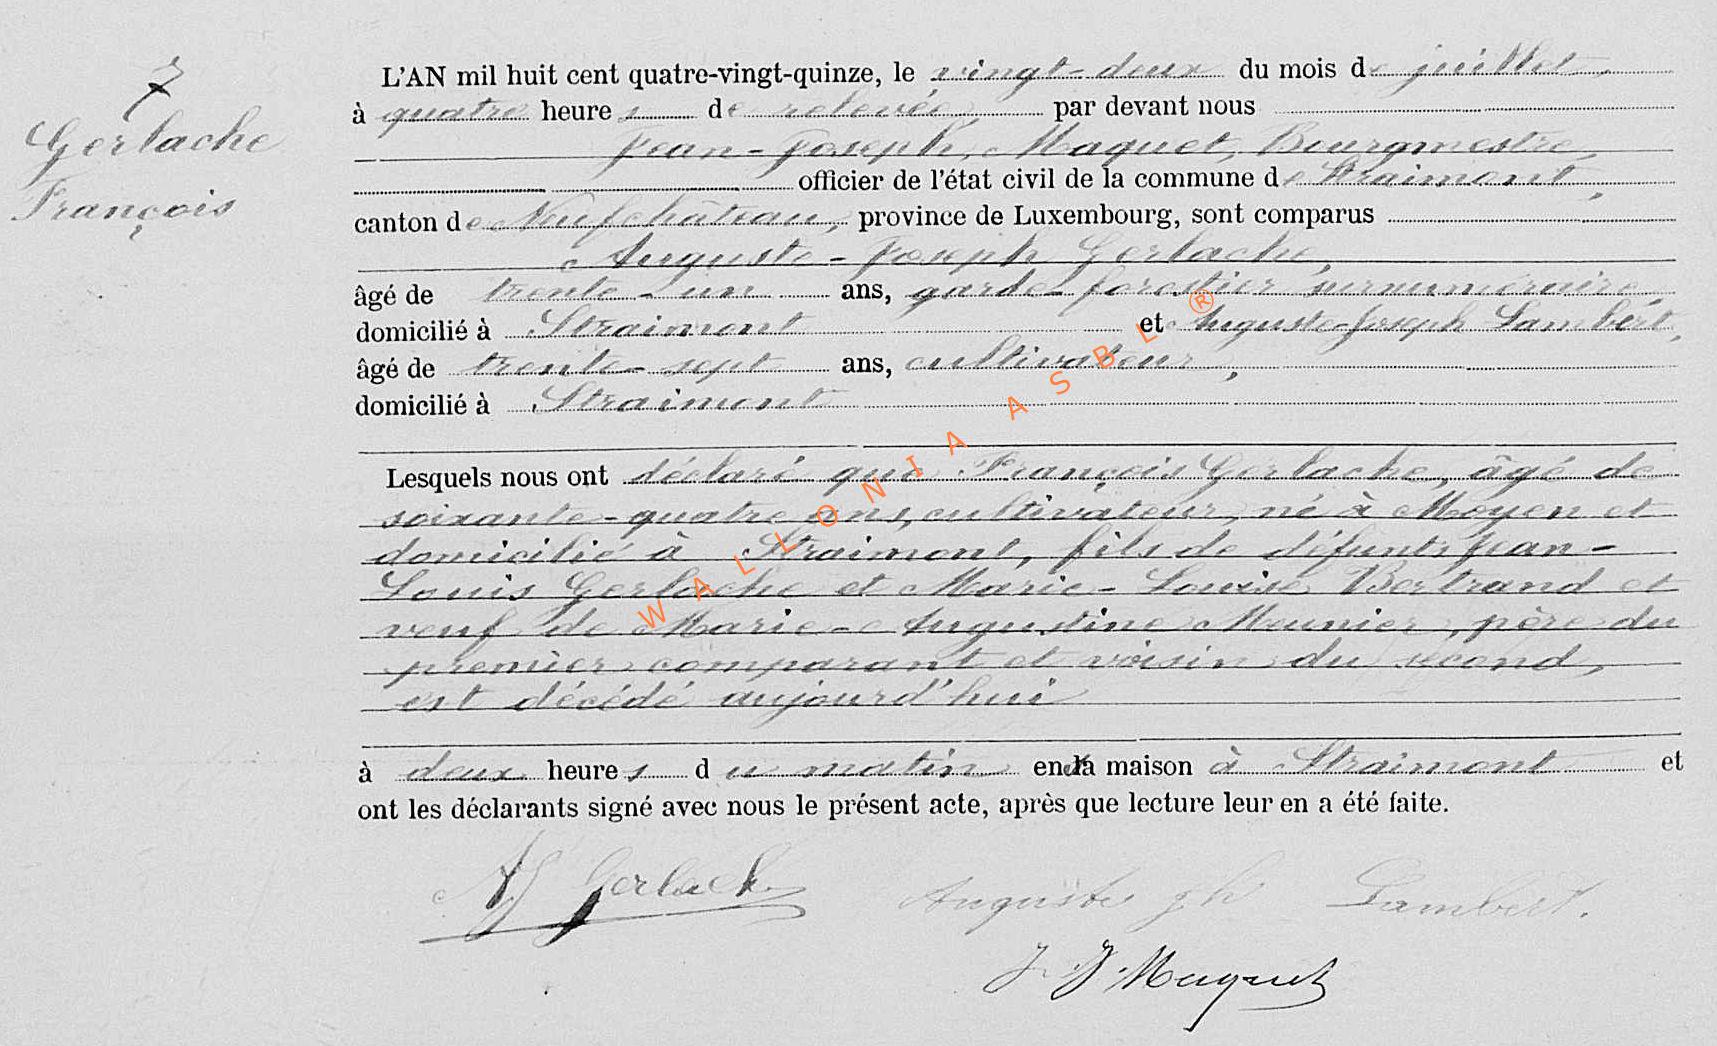 7
Gerlache
François
L'AN mil huit cent quatre-vingt-quinze, le vingt-deux du mois de juillet,
à quatre heures de relevée, par devant nous
Jean-Joseph Maquet, Bourgmestre,
officier de l'état civil de la commune de Straimont,
canton de Neufchâteau, province de Luxembourg, sont comparus
Auguste-Joseph Gerlache,
âgé de trente-un ans, garde forestier surnuméraire,
domicilié à Straimont et Auguste-Joseph Lambert,
âgé de trente-sept ans, cultivateur,
domicilié à Straimont
Lesquels nous ont déclaré que François Gerlache, âgé de
soixante-quatre ans, cultivateur, né à Moyen et
domicilié à Straimont, fils de défunts Jean-
Louis Gerlache et Marie-Louise Bertrand et
veuf de Marie-Augustine Meunier, père du
premier comparant et voisin du second,
est décédé aujourd'hui
à deux heures du matin en la maison à Straimont et
ont les déclarants signé avec nous le présent acte, après que lecture leur en a été faite.
AJ Gerlache
Auguste jh Lambert.
J. J. Maquet
WALLONIA ASBL ®